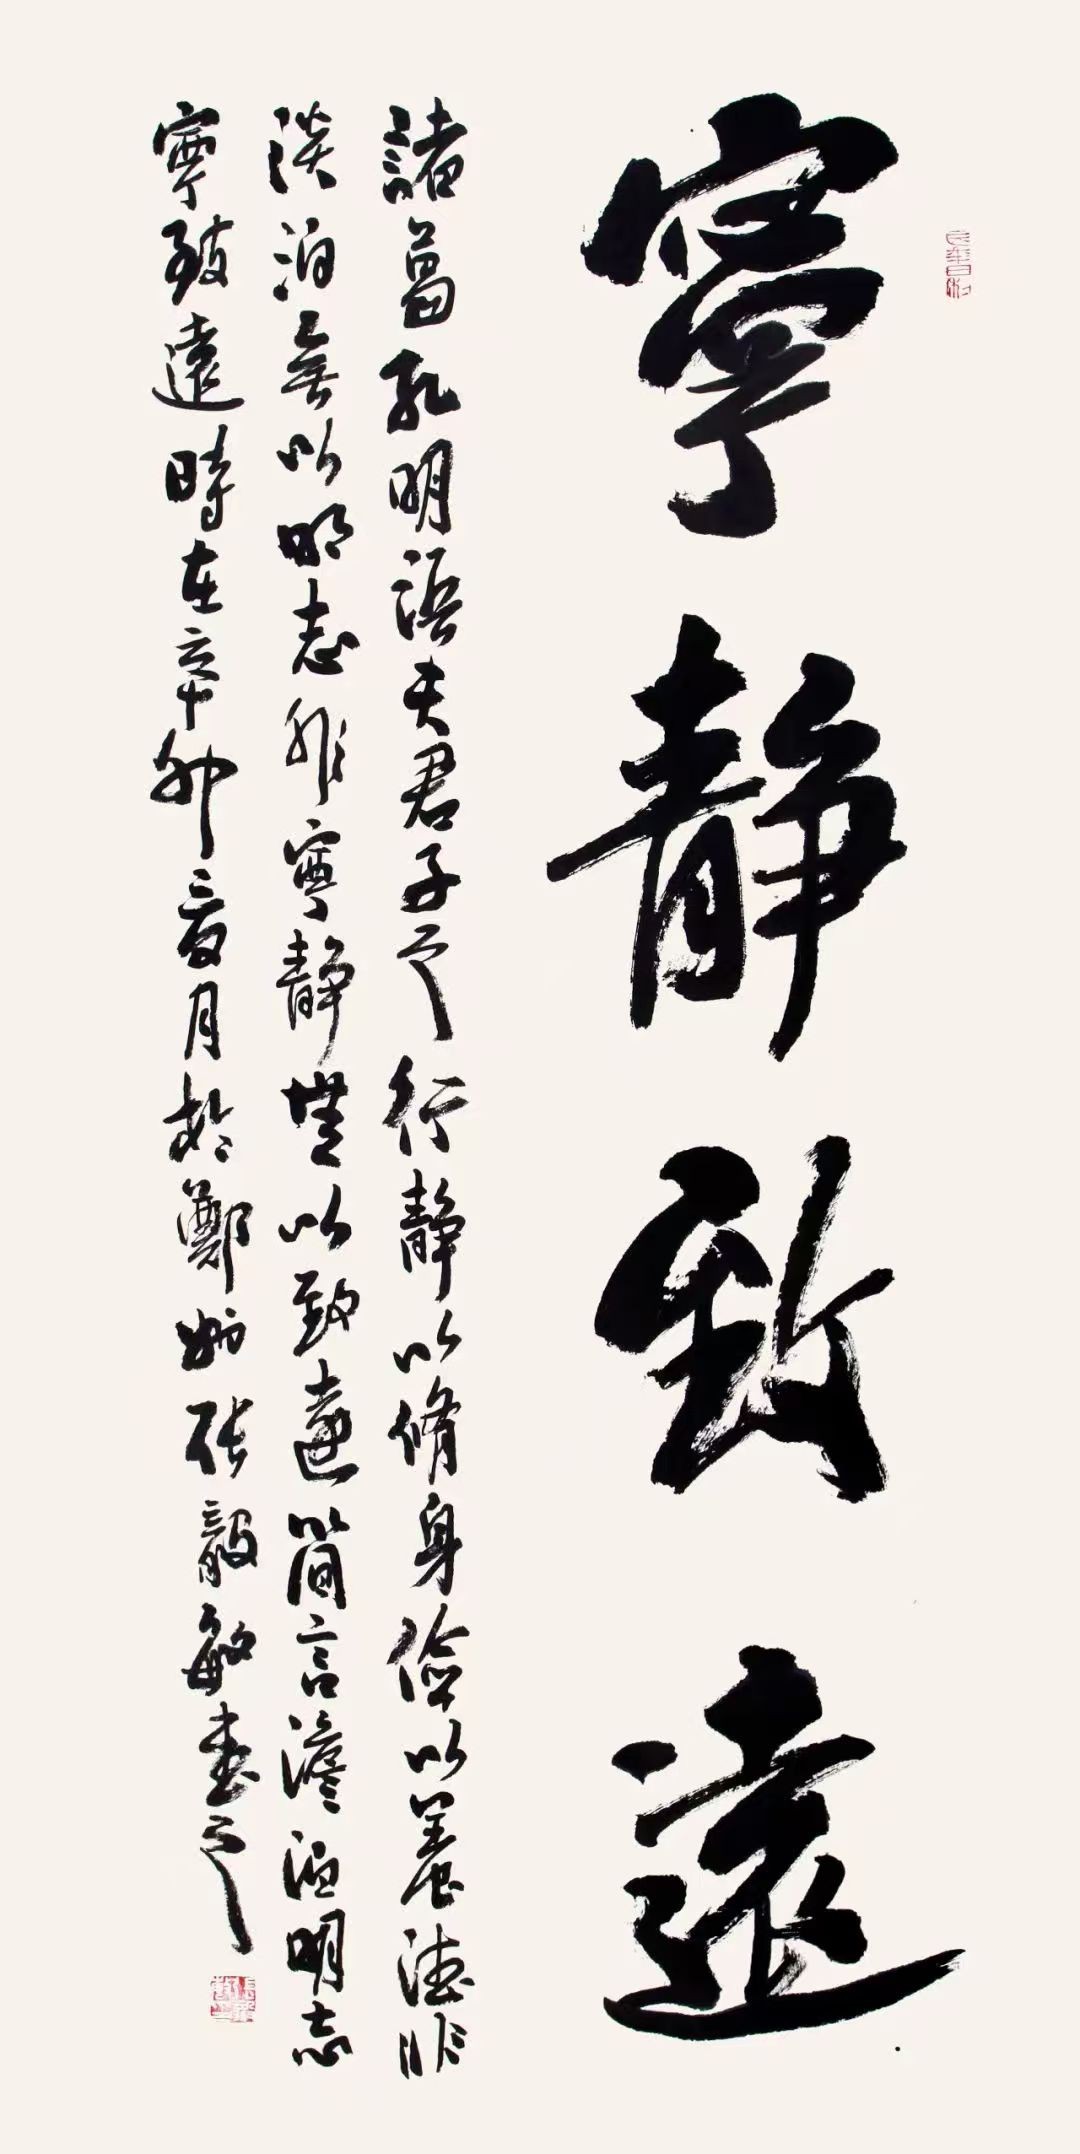 寧静致遠
諸葛孔明語夫君子之行静以脩身儉以養德非
淡泊無以明志非寧静無以致遠簡言澹泊明志
寧致遠時在辛卯夏月於鄭州張毅敏書之